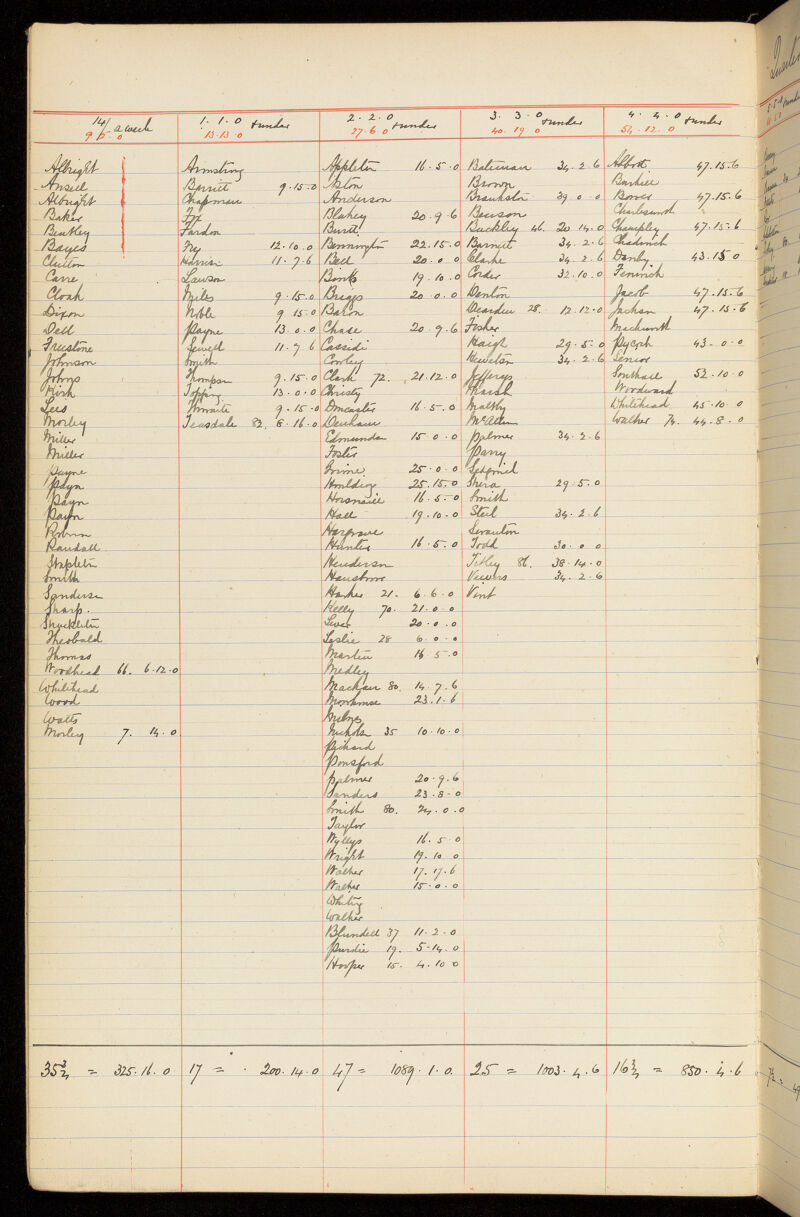 14/ a week
9/5.0
Albright
Ansell
Albright
Baker
Bentley
Bayes
Clutton
Carre
Cloak
Dixon
Dell
Freestone
Johnson
Johns
Kirk
Lees
Morley
Miller
Miller
Payne
Payn
Payn
Payn
Robson
Randall
Stapleton
Smith
Sanderson
Sharp.
Theobald
Thomas
Woodhead 66. 6.12.0
Whitehead
Wood
Watts
Morley 7. 14.0
35¾ = 325.16.0
1.1.0 & under
13.13.0
Armstrong
Barnet 9.15.0
Chapman
Fox
Fardon
Fry 12.10.0
Harrison 11.7.6
Lawson
Miles 9.15.0
Noble 9 15.0
Payne 13.0.0
Sewell 11.7.6
Smith
Thompson 9.15.0
Topping 13.0.0
Thwaite 9.15.0
Teasdale 82. 8.16.0
17 = 200.14.0
2.2.0 & under
27.6 0
Appleton 16.5.0
Aston
Anderson
Blakey 20.9.6
Burtt
Bennington 22.15.0
Bell 20.0.0
Binks 19.10.0
Briggs 20.0.0
Baron
Chase 20.9.6
Cassidi
Cowley
Clark 72. 21.12.0
Christy
Doncaster 16.5.0
Denham
Edmundson 15.0.0
Foster
Grime 25.0.0
Houlding 25.15.0
Horsnaill 16.5.0
Hall 19.10.0
Hargrave
Hunter 16.5.0
Henderson
Harker 21. 6.6.0
Kelly 70. 21.0.0
Lever 20.0.0
Leslie 28 6.0.0
Martin 16 5.0
Medley
Mackean 80. 14.7.6
Moorhouse 23.1.6
Milnes
Nicholson 35 10.10.0
Pickard
Ponsford
Palmer 20.9.6
Sanders 23.8.0
Smith 80. 24.0.0
Taylor
Wyllys 16.5.0
Wright 19.10 0
Walker 17.17.6
Walker 15.0.0
Whiting
Walker
Blundell 37 11.2.0
Purdie 19. 5.14.0
Hooper 15. 4.10 0
47 = 1089.1.0.
3.3.0 & under
40.19 0
Bateman 34.2.6
Brown
Braithwaite 39 0 0
Benson
Buckley 46. 20 14.0
Barnett 34.2.6
Clarke 34 2.6
Corder 32.10.0
Denton
Dearden 28. 12.12.0
Fisher
Haigh 29.5.0
Hewetson 34.2.6
Jefferys
Marsh
Maltby
McAllum
Palmer 34.2.6
Parry
Shera 29.5.0
Smith
Steel 34.2.6
Swanton
Todd 30.0 0
Titley 86. 38.14.0
Viewers 34.2.6
Vint
25 = 1003.4.6
4.4.0 & under
54.12.0
Abbott 47.15.6
Barhill
Bower 47.15.6
Charlesworth
Champley 47.15.6
Chadwick
Danby 43.15 0
Fenwick
Jacob 47.15.6
Jackson 47.15.6
Mackworth
Pycock 43.0.0
Senior
Southall 52.10.0
Woodward
Whitehead 45.10 0
Walker 74. 44.8.0
16¾ = 850.4.6